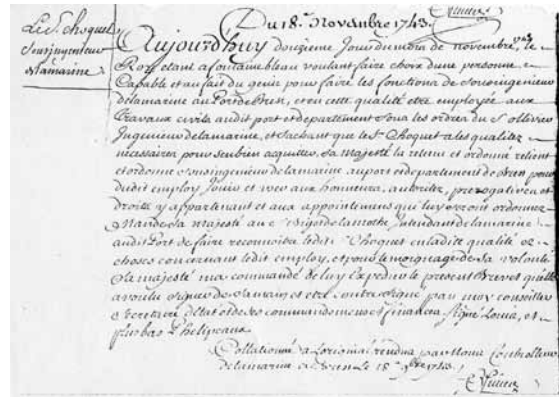 Du 18.e Novembre 1743.
Le S.r Choquet
Sousingenieur
dela marine
Aujourdhuy douzieme Jour du mois de novembre 1743 le
Roy etant a fontainebleau voulant faire choix dune personne
Capable et au fait du genie pour faire les fonctions de Sousingenieur
delamarine au Port de Brest, et en cette qualité etre employée aux
travaux civils audit port et departement sous les ordres du S.r ollivier
Ingenieur delamarine, et sachant que le S.r Choquet a les qualitez
necessaires pour sen bien acquitter, Sa Majesté la retenu et ordonné retient
et ordonne Sousingenieur de la marine au port et departement de Brest pour
dudit employ Jouir et user aux honneurs, autoritez, prerogatives et
droits y appartenant et aux appointemens qui luy seront ordonnez
Mande Sa Majesté au S.r Bigot dela mothe Intendant delamarine
audit Port de faire reconnoitre ledit S.r Choquet en ladite qualité es
choses concernant ledit employ, et pour temoignage de sa volonté
Sa majesté ma commandé de luy Expedier le present Brevet quelle
a voulu signer de sa main et etre contresigné par moy conseiller
Secretaire detat et de ses commandemens et finances Signé Louis, et
plus bas Phelipeaux
Collationné a Loriginal rendu par Nous Controlleur
delamarine a Brest Le 18.e 9bre 1743